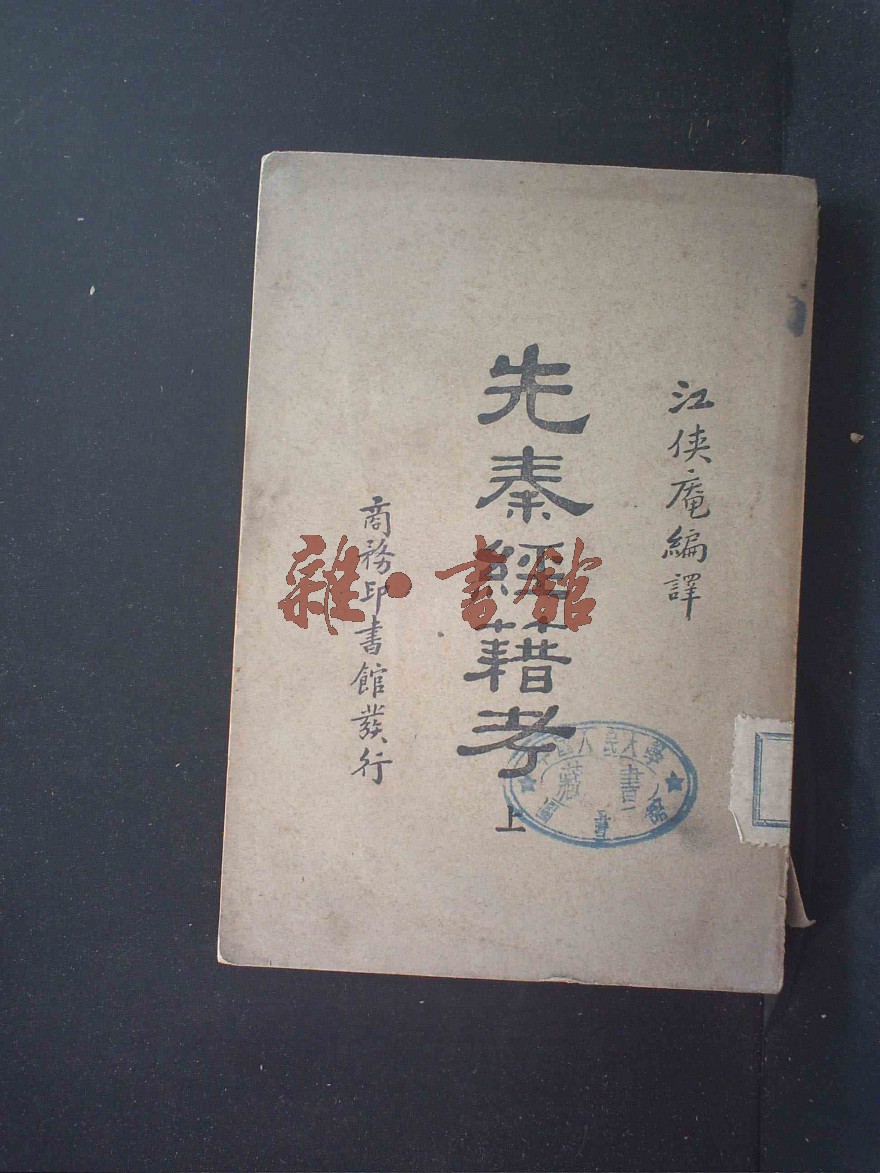 江俠庵編譯
先秦經籍考
上
商務印書館發行
雜·書館
人民大學
藏書